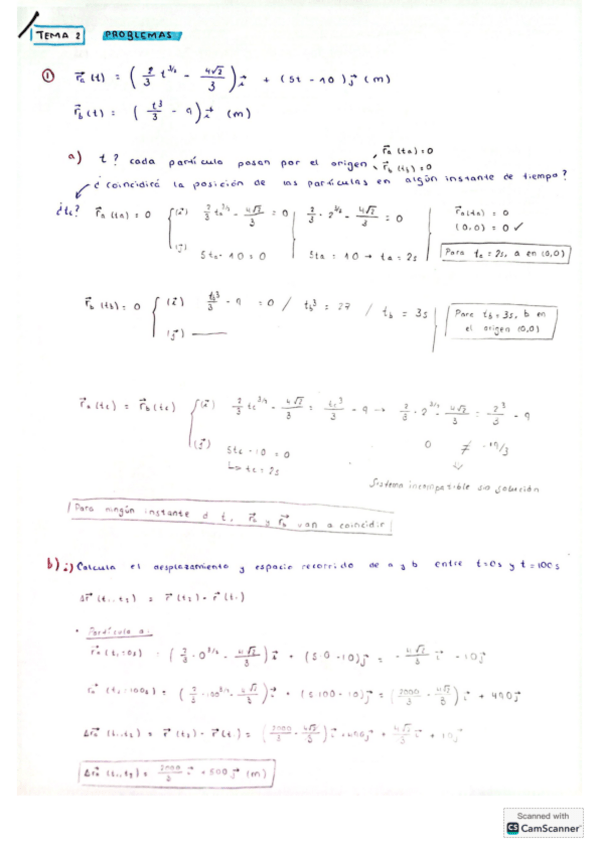 TEMA 2 PROBLEMAS
① r⃗a(t) = (2/3 t^3/2 - 4√2/3) i⃗ + (5t - 10) j⃗ (m)
r⃗b(t) = (t³/3 - 9) i⃗ (m)
a) t? cada partícula pasan por el origen r⃗a(ta)=0
r⃗b(tb)=0
¿coincidirá la posición de las partículas en algún instante de tiempo?
¿tc? r⃗a(ta)=0 (i⃗) 2/3 ta^3/2 - 4√2/3 = 0 2/3 · 2^3/2 - 4√2/3 = 0 r⃗a(ta) = 0
(0,0) = 0 ✓
(j⃗) 5ta - 10 = 0 5ta = 10 → ta = 2s Para ta = 2s, a en (0,0)
r⃗b(tb) = 0 (i⃗) tb³/3 - 9 = 0 / tb³ = 27 / tb = 3s Para tb = 3s, b en
el origen (0,0)
(j⃗)
r⃗a(tc) = r⃗b(tc) (i⃗) 2/3 tc^3/2 - 4√2/3 = tc³/3 - 9 → 2/3 · 2^3/2 - 4√2/3 = 2³/3 - 9
(j⃗) 5tc - 10 = 0 0 ≠ -19/3
↳ tc = 2s
Sistema incompatible sin solución
Para ningún instante d t, r⃗a y r⃗b van a coincidir
b) i) Calcula el desplazamiento y espacio recorrido de a y b entre t=0s y t=100s
Δr⃗(t₁,t₂) = r⃗(t₂) - r⃗(t₁)
• Partícula a:
r⃗a(t₁=0s) = (2/3 · 0^3/2 - 4√2/3) i⃗ + (5·0 - 10) j⃗ = - 4√2/3 i⃗ - 10j⃗
r⃗a(t₂=100s) = (2/3 · 100^3/2 - 4√2/3) i⃗ + (5·100 - 10) j⃗ = (2000/3 - 4√2/3) i⃗ + 490j⃗
Δr⃗a(t₁,t₂) = r⃗(t₂) - r⃗(t₁) = (2000/3 - 4√2/3) i⃗ + 490j⃗ + 4√2/3 i⃗ + 10j⃗
Δr⃗a(t₁,t₂) = 2000/3 i⃗ + 500 j⃗ (m)
Scanned with
CS CamScanner